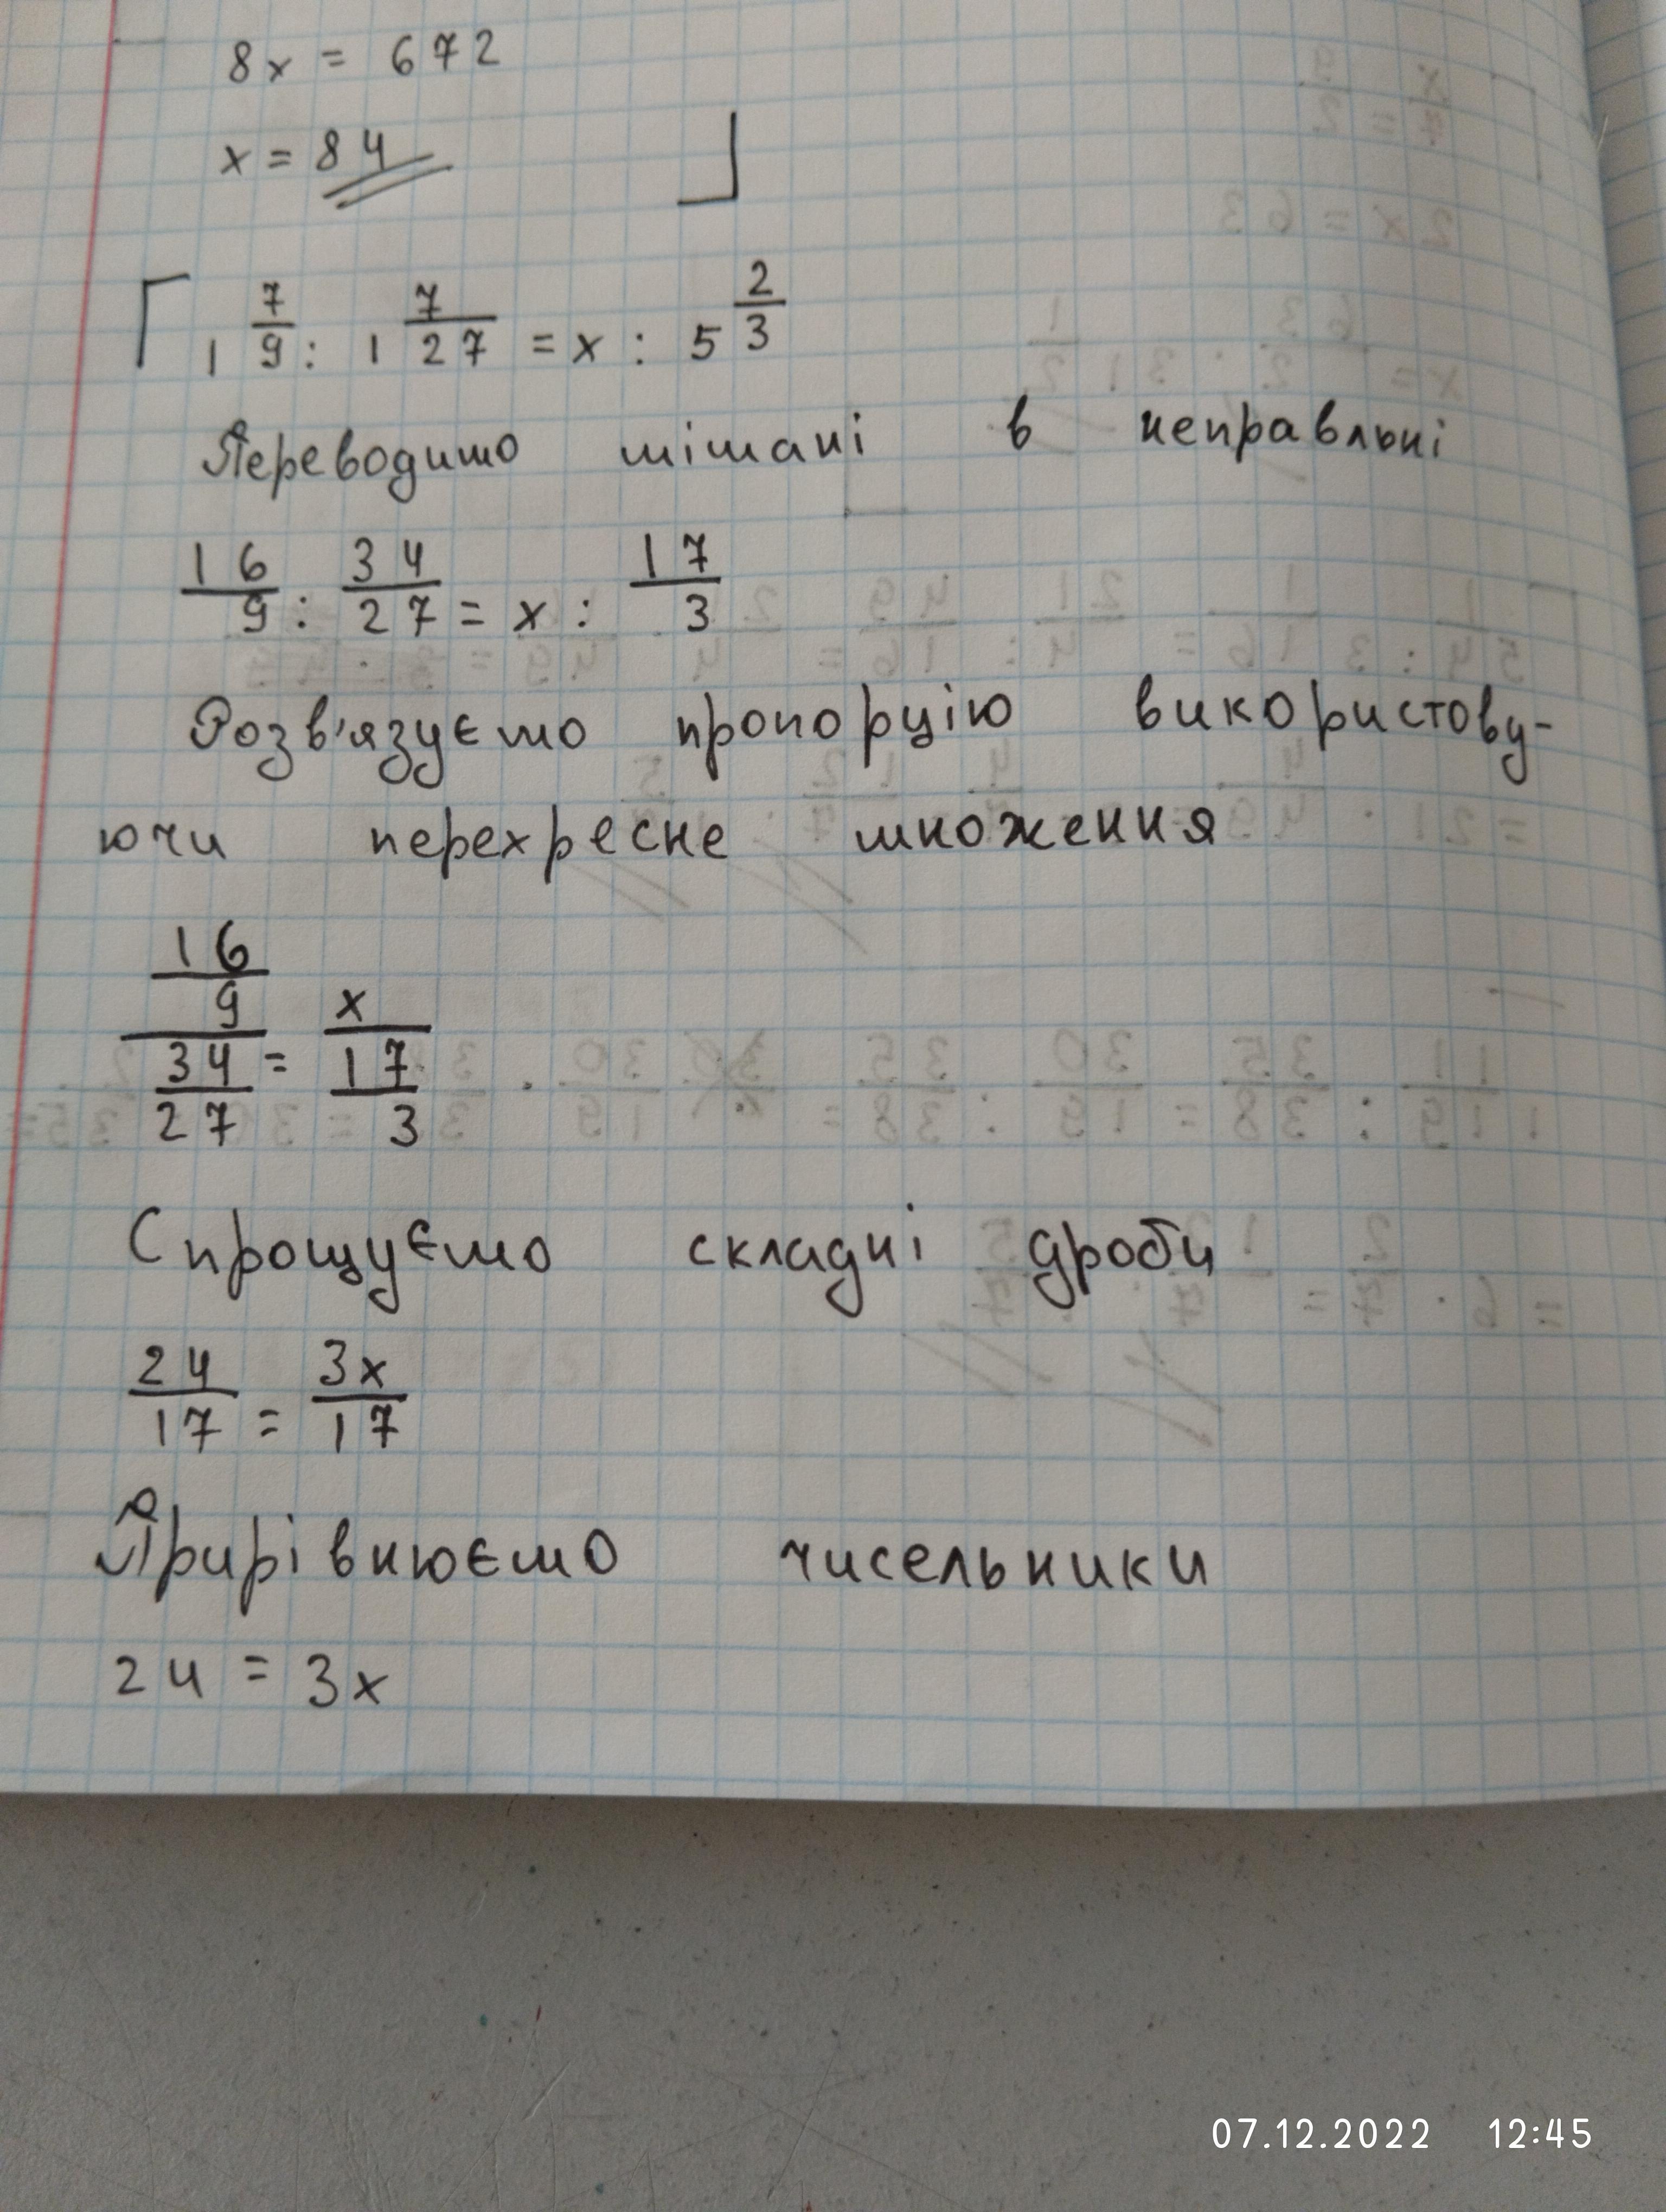 8x = 672
x = 84
1 7/9 : 1 7/27 = x : 5 2/3
Переводимо мішані в неправльні
16/9 : 34/27 = x : 17/3
Розв'язуємо пропорцію використову-
ючи перехресне множення
16/9 / 34/27 = x / 17/3
Спрощуємо складні дроби
24/17 = 3x/17
Прирівнюємо чисельники
24 = 3x
07.12.2022 12:45